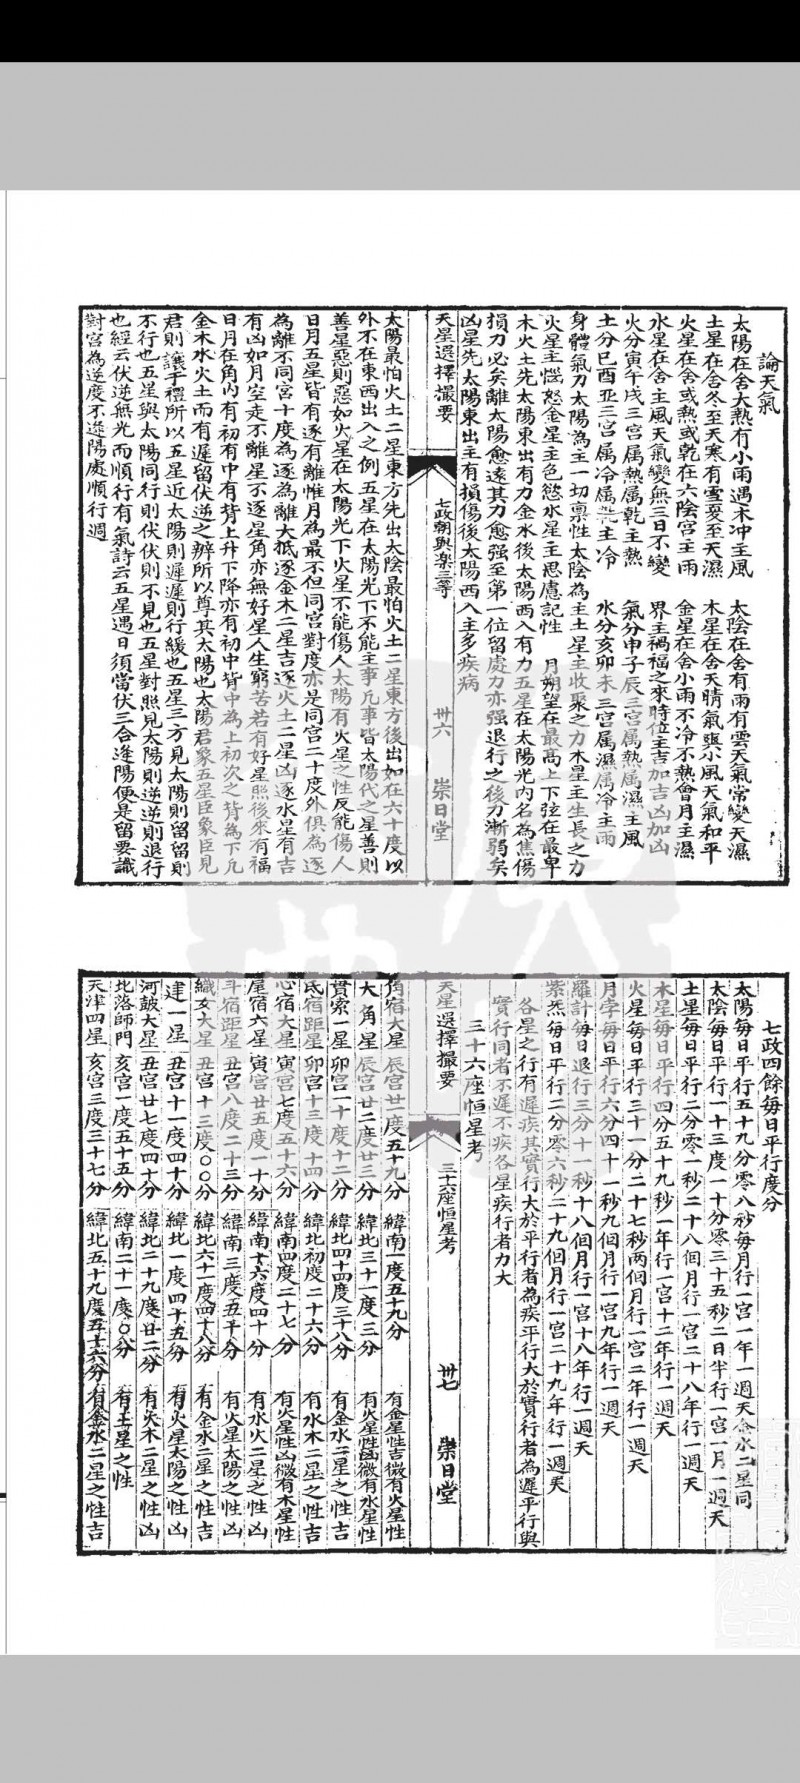 論天氣
太陽在舍大熱有小雨遇未冲主風　太陰在舍有雨有雲天氣常變天濕
土星在舍冬至天寒有雪夏至天濕　木星在舍天晴氣爽小風天氣和平
火星在舍或熱或乾在六陰宮主雨　金星在舍小雨不冷不熱會月主濕
水星在舍主風天氣變無三日不變　界主禍福之來時位主吉加吉凶加凶
火分寅午戌三宮属熱属乾主熱　氣分申子辰三宮属熱属濕主風
土分巳酉丑三宮属冷属乾主冷　水分亥卯未三宮属濕属冷主雨
身體氣力太陽為主一切禀性太陰為主土星主收聚之力木星主生長之力
火星主惱怒金星主色慾水星主思慮記性　月朔望在最高上下弦在最卑
木火土先太陽東出有力金水後太陽西入有力五星在太陽光内名為焦傷
損力必矣離太陽愈遠其力愈强至第一位留處力亦强退行之後力漸弱矣
凶星先太陽東出主有損傷後太陽西入主多疾病
天星選擇撮要
七政朝與楽三等
卅六
崇日堂
太陽最怕火土二星東方先出太陰最怕火土二星東方後出如在六十度以
外不在東西出入之例五星在太陽光下不能主事凡事皆太陽代之星善則
善星惡則惡如火星在太陽光下火星不能傷人太陽有火星之性反能傷人
日月五星皆有逐有離惟月為最不但同宮對度亦是同宮二十度外俱為逐
為離不同宮十度為逐為離大抵逐金木二星吉逐火土二星凶逐水星有吉
有凶如月空走不離星不逐星角亦無好星人生窮苦若有好星照後來有福
日月在角内有初有中有背上升下降亦有初中背中為上初次之背為下凡
金木水火土而有遲留伏逆之辨所以尊其太陽也太陽君象五星臣象臣見
君則讓乎禮所以五星近太陽則遲遲則行緩也五星三方見太陽則留留則
不行也五星與太陽同行則伏伏則不見也五星對照見太陽則逆逆則退行
也經云伏逆無光而順行有氣詩云五星遇日須當伏三合逢陽便是留要識
對宮為逆度不逢陽處順行週
七政四餘每日平行度分
太陽每日平行五十九分零八秒每月行一宮一年一週天金水二星同
太陰每日平行一十三度一十分零三十五秒二日半行一宮一月一週天
土星每日平行二分零一秒二十八個月行一宮二十八年行一週天
木星每日平行四分五十九秒一年行一宮十二年行一週天
火星每日平行三十一分二十七秒两個月行一宮二年行一週天
月孛每日平行六分四十一秒九個月行一宮九年行一週天
羅計每日退行三分十一秒十八個月行一宮十八年行一週天
紫炁每日平行二分零六秒二十九個月行一宮二十九年行一週天
各星之行有遲疾其實行大於平行者為疾平行大於實行者為遲平行與
實行同者不遲不疾各星疾行者力大
三十六座恒星考
天星選擇撮要
三十六座恒星考
卅七
崇日堂
角宿大星　辰宮廿一度五十九分　緯南一度五十九分　有金星性吉微有火星性
大角星　辰宮廿二度廿三分　緯北三十一度三分　有火星性凶微有水星性
貫索一星　卯宮一十度十二分　緯北四十四度三十八分　有金水二星之性吉
氐宿距星　卯宮十三度十四分　緯北初度二十六分　有水木二星之性吉
心宿大星　寅宮七度五十六分　緯南四度二十七分　有火星性凶微有木星性
尾宿六星　寅宮廿五度一十分　緯南十六度四十分　有水火二星之性凶
斗宿距星　丑宮八度二十三分　緯南三度五十分　有火星太陽之性凶
織女大星　丑宮十三度〇〇分　緯北六十一度四十八分　有金水二星之性吉
建一星　丑宮十一度四十分　緯北一度四十五分　有火星太陽之性凶
河鼓大星　丑宮廿七度四十分　緯北二十九度廿二分　有火木二星之性凶
北落師門　亥宮一度五十五分　緯南二十一度〇分　有土星之性
天津四星　亥宮三度三十七分　緯北五十九度五十六分　有金水二星之性吉